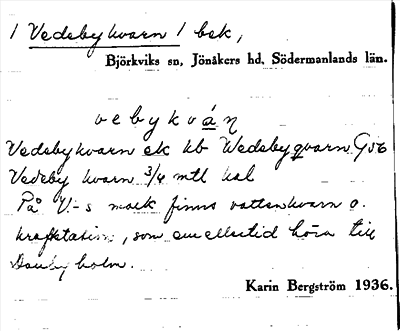 / Vedeby kvarn / bsk,
Björkviks sn, Jönåkers hd, Södermanlands län.
vebykván
Vedeby kvarn ek kb Wedeby qvarn G56
Vedeby kvarn 3/4 mtl kal
På V:-s mark finns vattenkvarn o.
kraftstation, som emellertid höra till
Danbyholm.
Karin Bergström 1936.